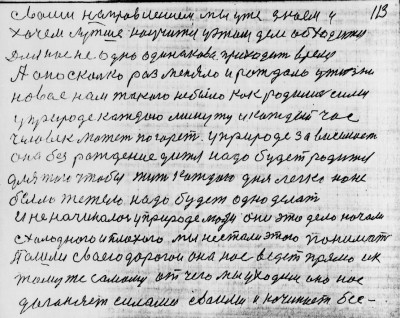 113
своим направлением мы уже знаем и
хочем лутше научити этим делом обходити
для нас не одно одинакова приходит время
А оно сколко раз меняло и рождало у жизни
новое нам такого небыло как родимое силы
у природе каждою минуту и каждый час
человек может погорет у природе зависишает
она без рождение дитя надо будет родити
для того чтобы жит каждого дня легко но не
было тежело надо будет одно делат
И не начиналос у природе люди они это дело начали
с холодного и плохого мы нестали этого понимат
Пошли своею дорогои она нас ведет прямо и к
тому же самому от чего мы уходим оно нас
даганяет силами своими и начинает все-